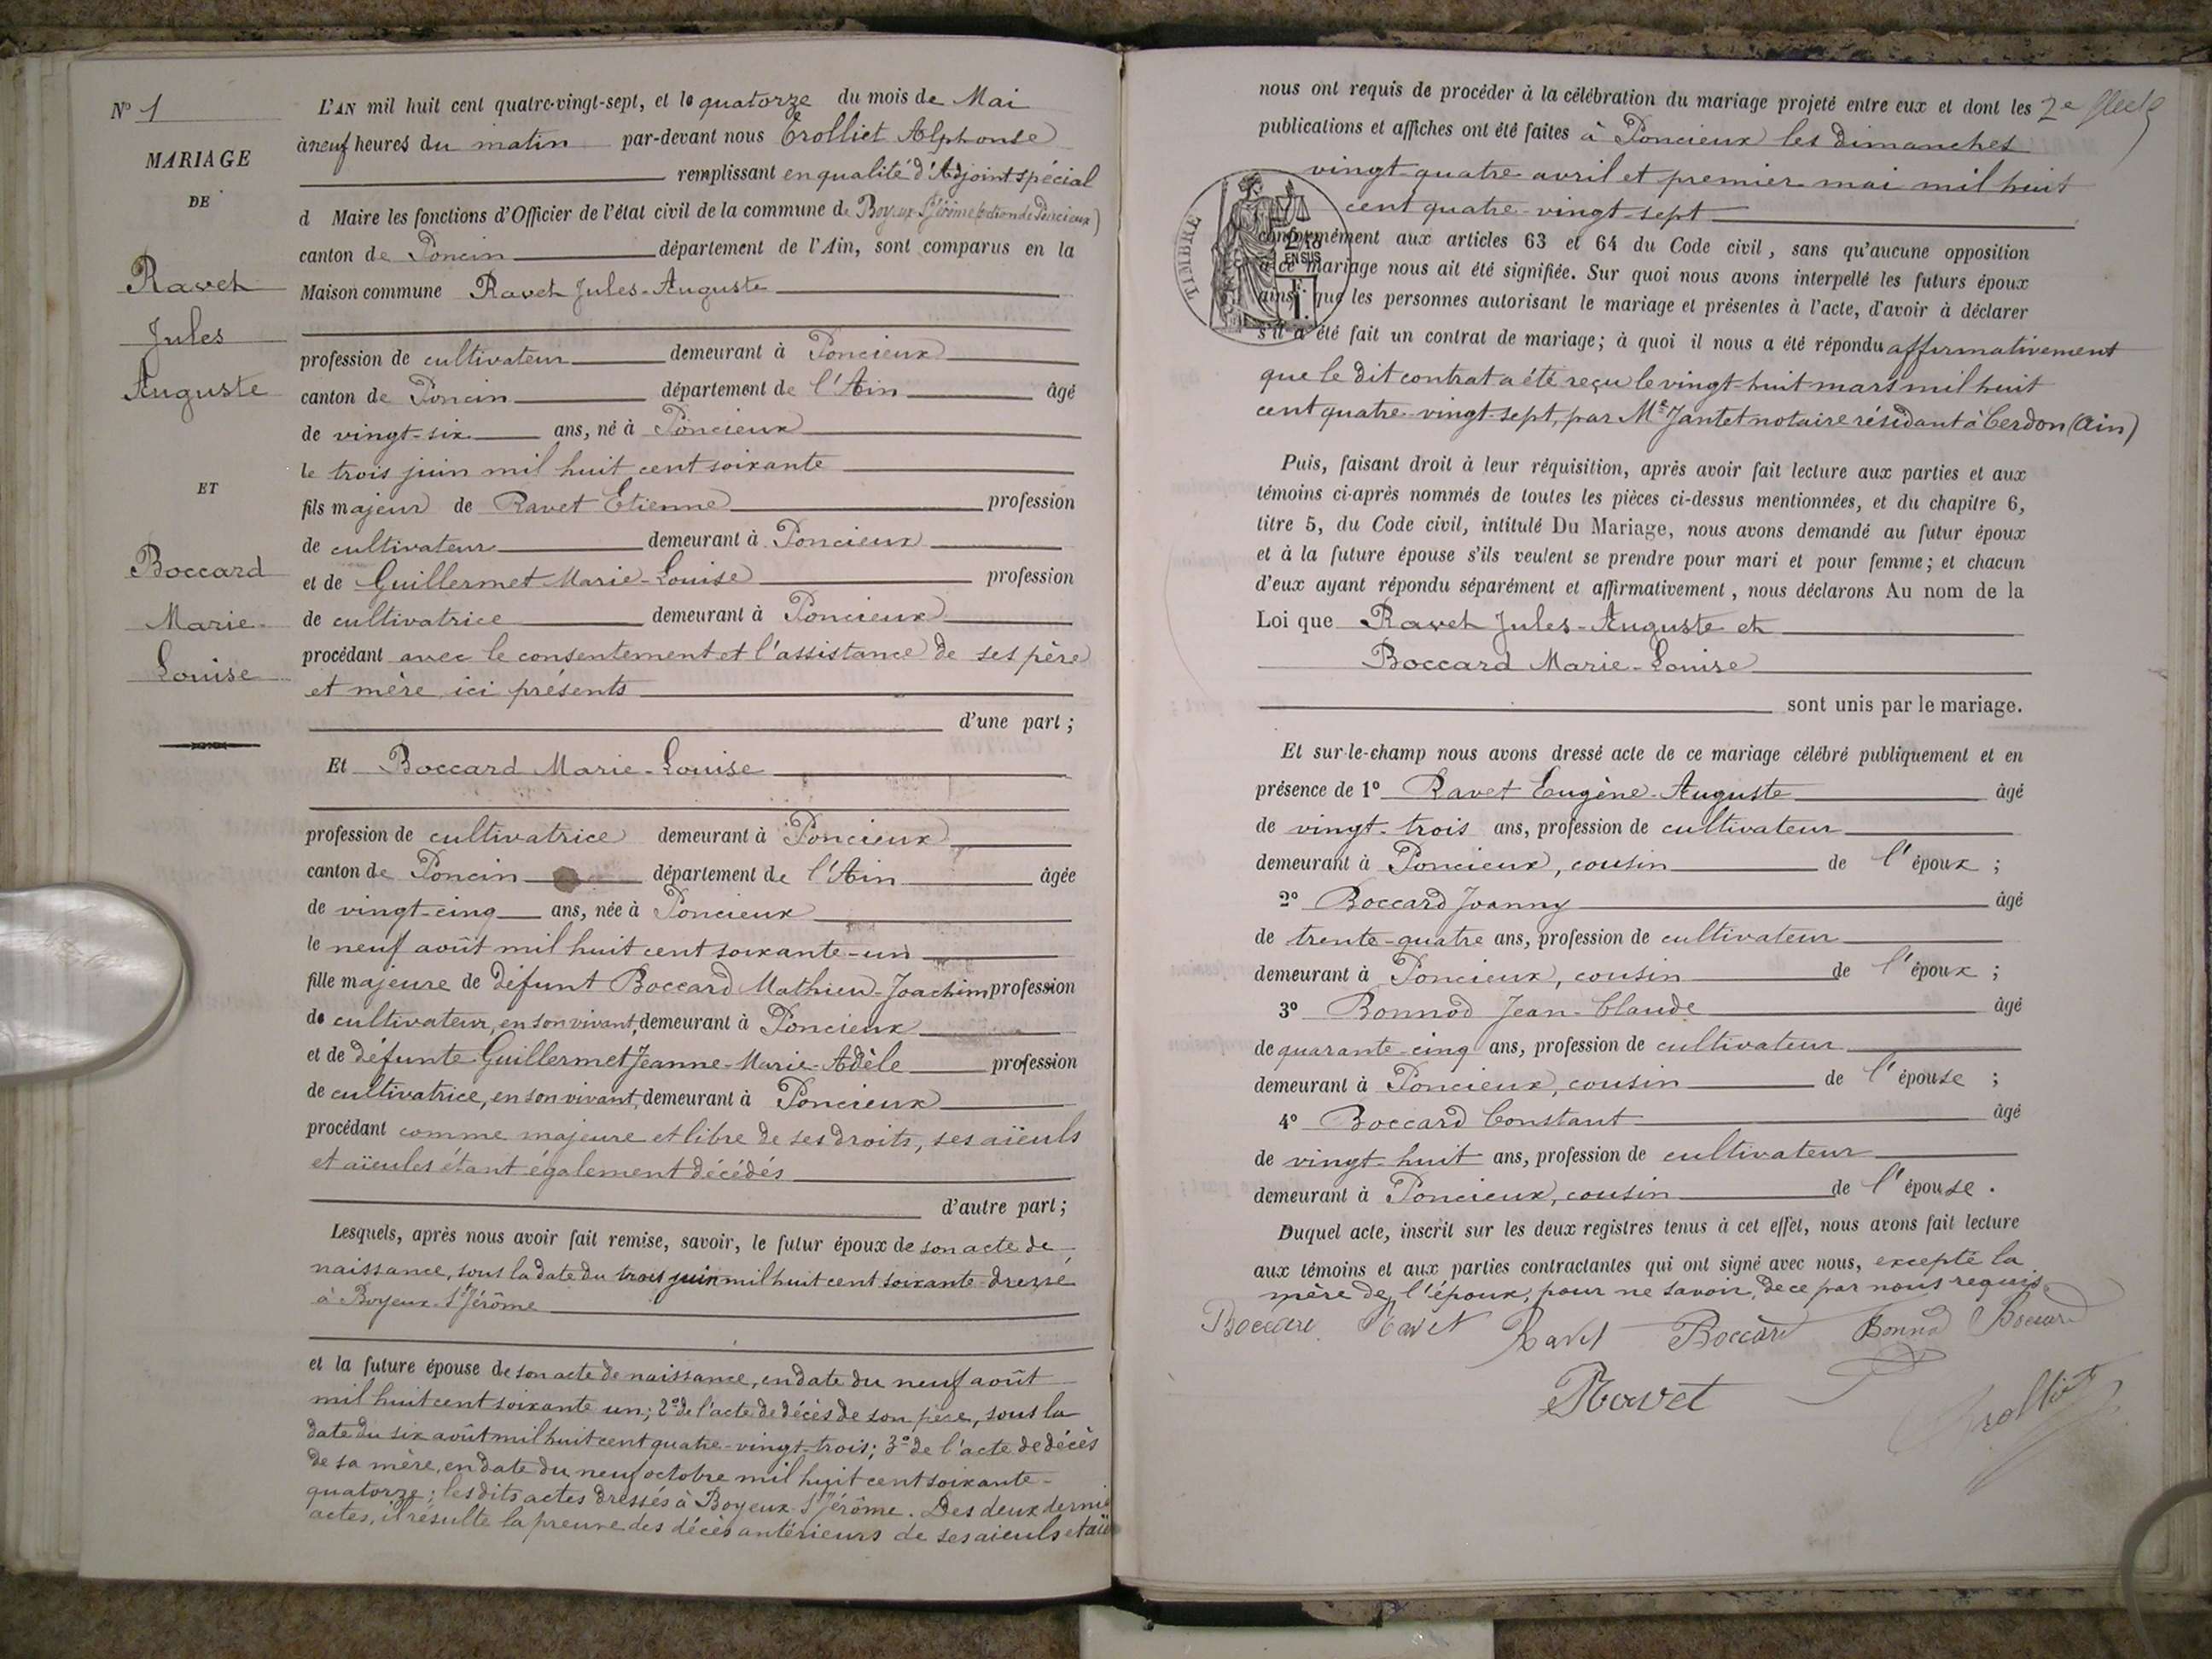 N° 1
MARIAGE
DE
Ravet
Jules
Auguste
ET
Boccard
Marie-
Louise
L'AN mil huit cent quatre-vingt-sept, et le quatorze du mois de Mai
à neuf heures du matin par-devant nous Trolliet Alphonse
remplissant en qualité d'Adjoint spécial
d Maire les fonctions d'Officier de l'état civil de la commune de Boyeux-St Jérôme (section de Poncieux)
canton de Poncin département de l'Ain, sont comparus en la
Maison commune Ravet Jules-Auguste
profession de cultivateur demeurant à Poncieux
canton de Poncin département de l'Ain âgé
de vingt-six ans, né à Poncieux
le trois juin mil huit cent soixante
fils majeur de Ravet Etienne profession
de cultivateur demeurant à Poncieux
et de Guillermet Marie-Louise profession
de cultivatrice demeurant à Poncieux
procédant avec le consentement et l'assistance de ses père
et mère ici présents
d'une part ;
Et Boccard Marie-Louise
profession de cultivatrice demeurant à Poncieux
canton de Poncin département de l'Ain âgée
de vingt-cinq ans, née à Poncieux
le neuf août mil huit cent soixante-un
fille majeure de défunt Boccard Mathieu-Joachim profession
de cultivateur, en son vivant, demeurant à Poncieux
et de défunte Guillermet Jeanne-Marie-Adèle profession
de cultivatrice, en son vivant, demeurant à Poncieux
procédant comme majeure et libre de ses droits, ses aïeuls
et aïeules étant également décédés
d'autre part ;
Lesquels, après nous avoir fait remise, savoir, le futur époux de son acte de
naissance, sous la date du trois juin mil huit cent soixante dressé
à Boyeux-St Jérôme
et la future épouse de son acte de naissance, en date du neuf août
mil huit cent soixante un; 2° de l'acte de décès de son père, sous la
date du six août mil huit cent quatre-vingt-trois; 3° de l'acte de décès
de sa mère, en date du neuf octobre mil huit cent soixante-
quatorze; les dits actes dressés à Boyeux-St Jérôme. Des deux dernie
actes, il résulte la preuve des décès antérieurs de ses aieuls et aïe
nous ont requis de procéder à la célébration du mariage projeté entre eux et dont les 2e
publications et affiches ont été faites à Poncieux les dimanches
vingt-quatre avril et premier mai mil huit
cent quatre-vingt-sept
TIMBRE
EN SUS
conformément aux articles 63 et 64 du Code civil, sans qu'aucune opposition
à ce mariage nous ait été signifiée. Sur quoi nous avons interpellé les futurs époux
ainsi que les personnes autorisant le mariage et présentes à l'acte, d'avoir à déclarer
s'il a été fait un contrat de mariage; à quoi il nous a été répondu affirmativement
que le dit contrat a été reçu le vingt-huit mars mil huit
cent quatre-vingt-sept, par Me Jantet notaire résidant à Cerdon (Ain)
Puis, faisant droit à leur réquisition, après avoir fait lecture aux parties et aux
témoins ci-après nommés de toutes les pièces ci-dessus mentionnées, et du chapitre 6,
titre 5, du Code civil, intitulé Du Mariage, nous avons demandé au futur époux
et à la future épouse s'ils veulent se prendre pour mari et pour femme; et chacun
d'eux ayant répondu séparément et affirmativement, nous déclarons Au nom de la
Loi que Ravet Jules-Auguste et
Boccard Marie-Louise
sont unis par le mariage.
Et sur-le-champ nous avons dressé acte de ce mariage célébré publiquement et en
présence de 1° Ravet Eugène-Auguste âgé
de vingt-trois ans, profession de cultivateur
demeurant à Poncieux, cousin de l'époux ;
2° Boccard Joanny âgé
de trente-quatre ans, profession de cultivateur
demeurant à Poncieux, cousin de l'époux ;
3° Bonnod Jean-Claude âgé
de quarante-cinq ans, profession de cultivateur
demeurant à Poncieux, cousin de l'épouse ;
4° Boccard Constant âgé
de vingt-huit ans, profession de cultivateur
demeurant à Poncieux, cousin de l'épouse .
Duquel acte, inscrit sur les deux registres tenus à cet effet, nous avons fait lecture
aux témoins et aux parties contractantes qui ont signé avec nous, excepté la
mère de l'époux, pour ne savoir, de ce par nous requis.
Boccard Ravet Ravet Boccard Bonnod Boccard
Ravet Trolliet